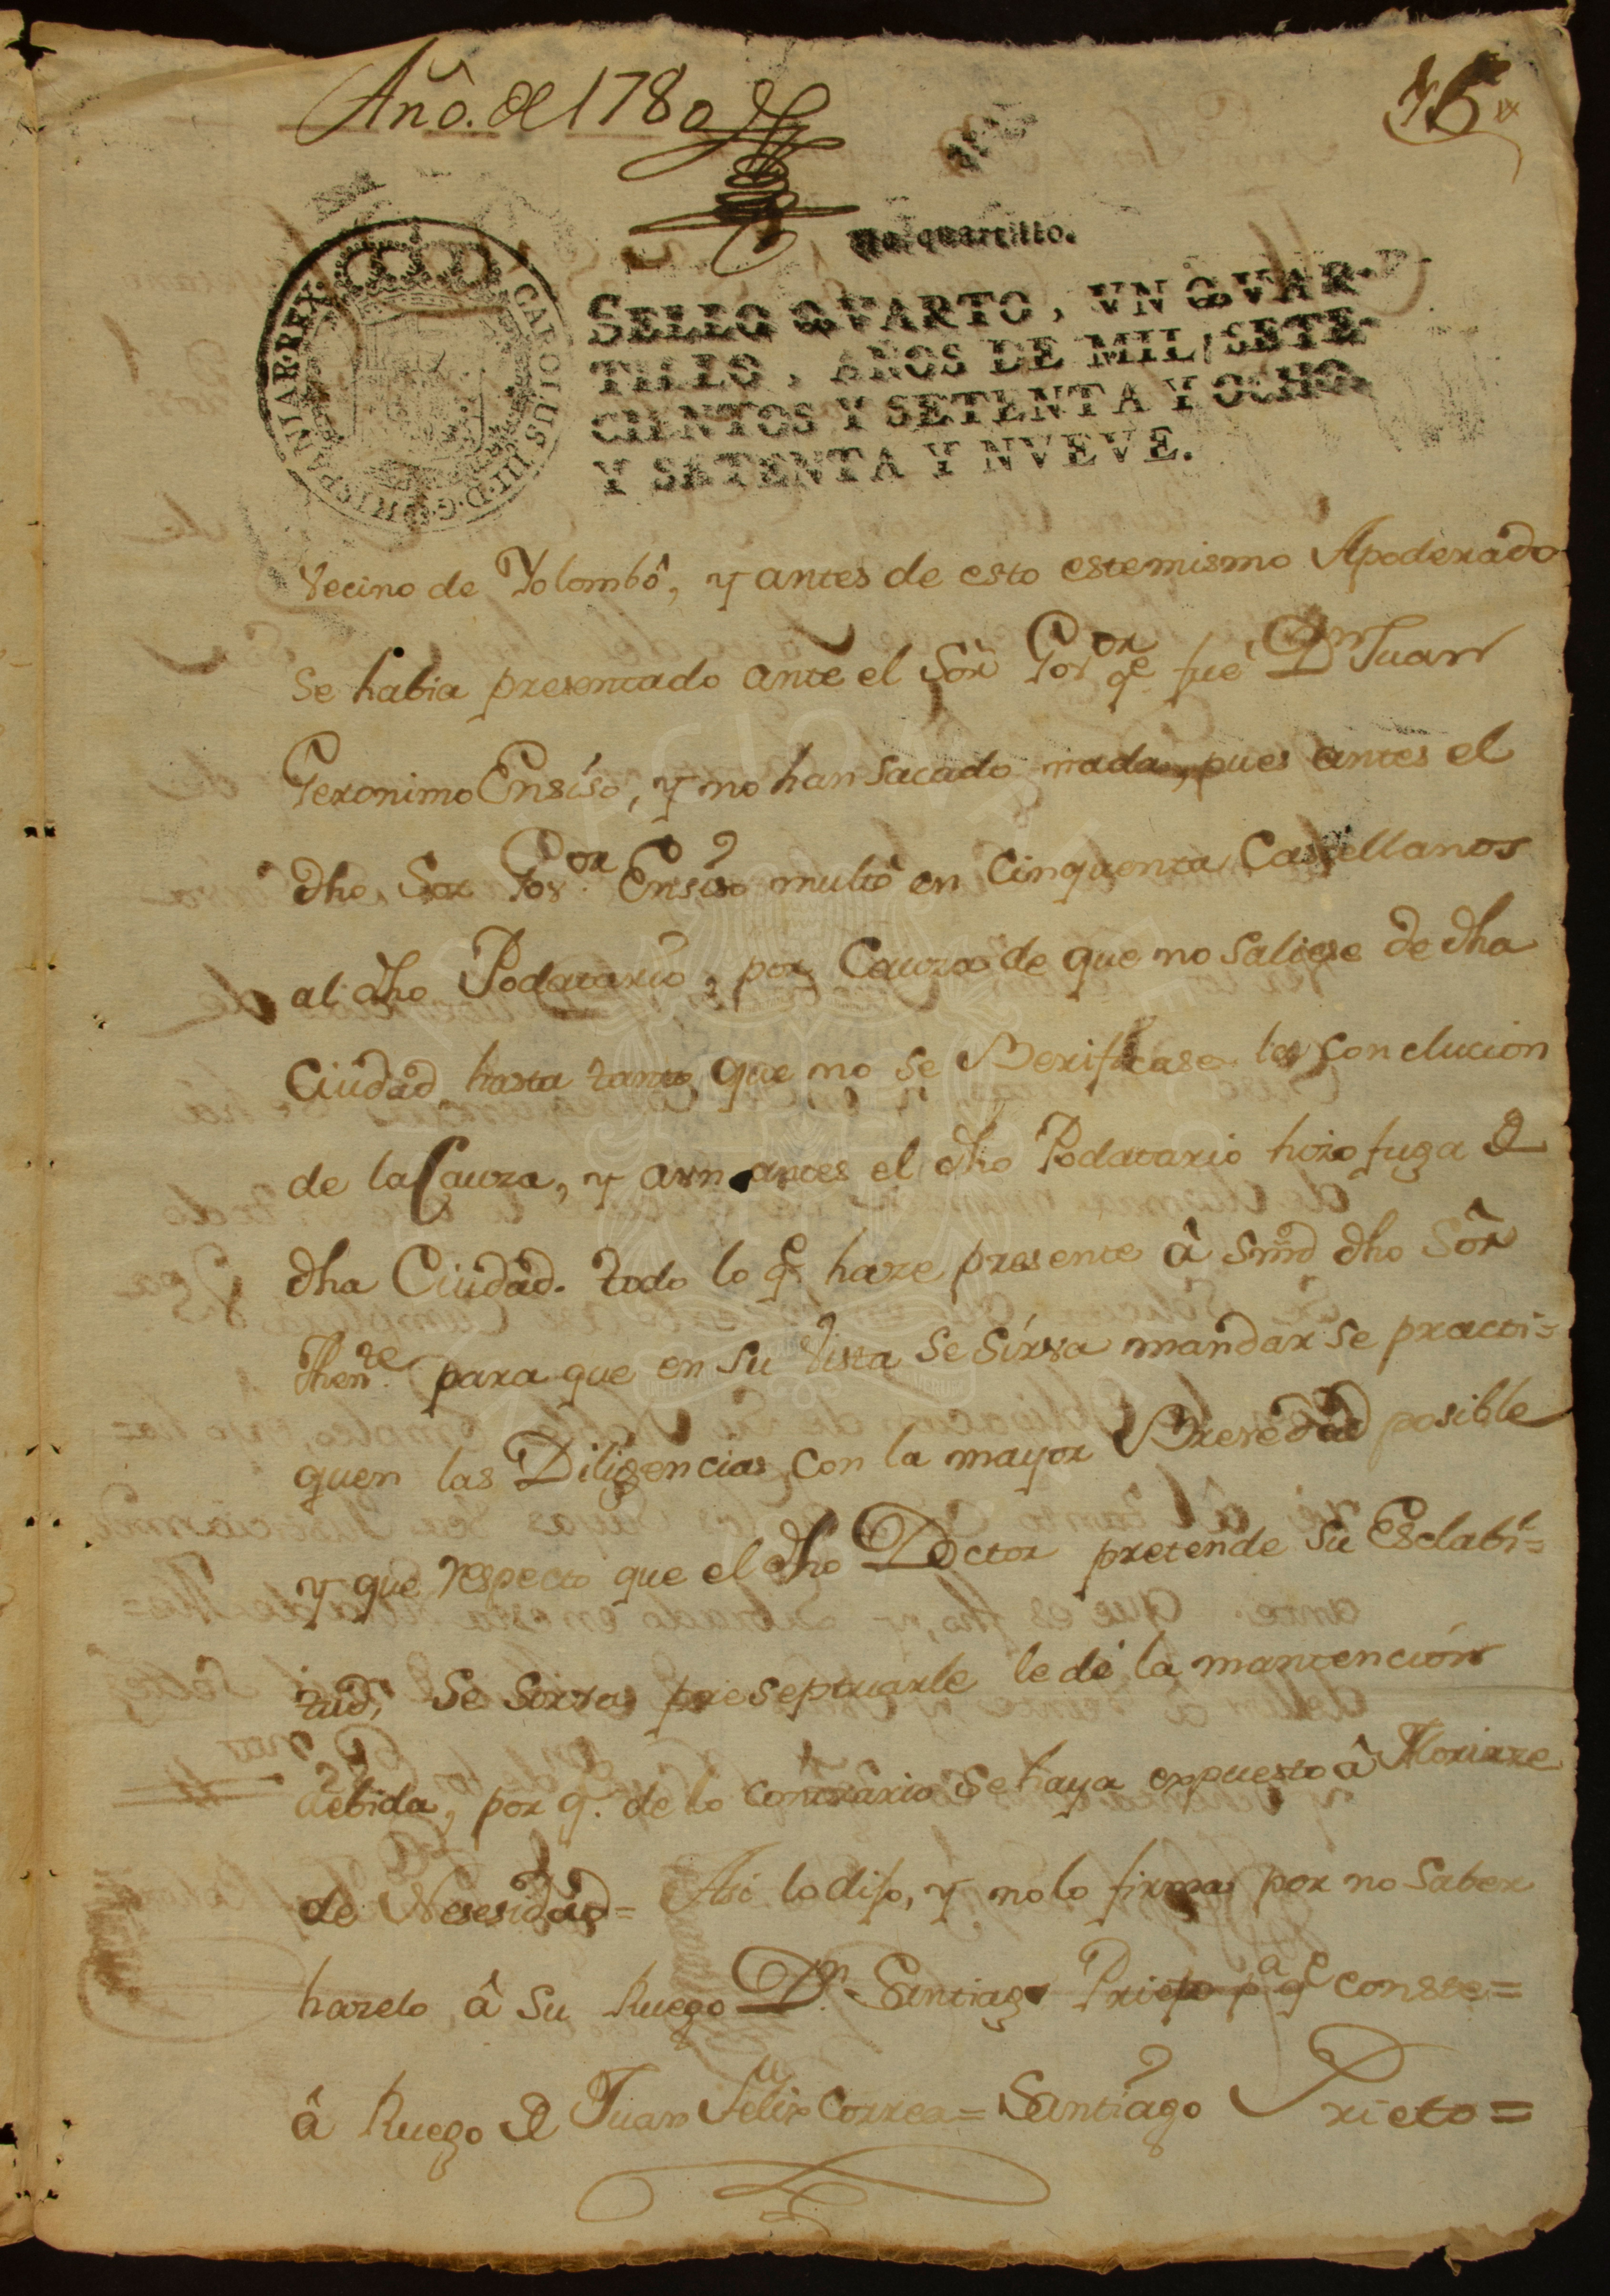 Año. de 1780
Un quartillo.
CAROLUS III D. G. HISPANIAR. REX.
SELLO QVARTO, VN QVAR-
TILLO, AÑOS DE MIL SETE-
CIENTOS Y SETENTA Y OCHO,
Y SETENTA Y NVEVE.
Vecino de Yolombô, y antes de esto estemismo Apoderado
se habia presentado ante el Sõr Gov.or qe. fue Dn Juan
Geronimo Ensiso, y no han sacado nada, pues antes el
dho Sor Gov.or Ensiso multò en Cinquenta Castellanos
al dho Podatario, por Cauza de que no saliese de dha
Ciudad hasta tanto que no se Berificase la Conclucion
de la Cauza, y aun antes el dho Podatario hizo fuga de
dha Ciudad. todo lo qe. haze presente â Smrd dho Sõr
Thente. para que en su Vista se sirva mandar se practi=
quen las Diligencias con la mayor Brevedad posible
y que respecto que el dho Doctor pretende su Esclabi=
tud, se sirva preseptuarle le dé la mantencion
debida, por q. de lo contrario se haya expuesto â Morirse
de Nesesidad= Asi lo dijo, y no lo firma por no saber
harelo, â su Ruego Dn. Santiago Prieto pa qe conste=
â Ruego de Juan Felix Correa= Santiago Prieto=